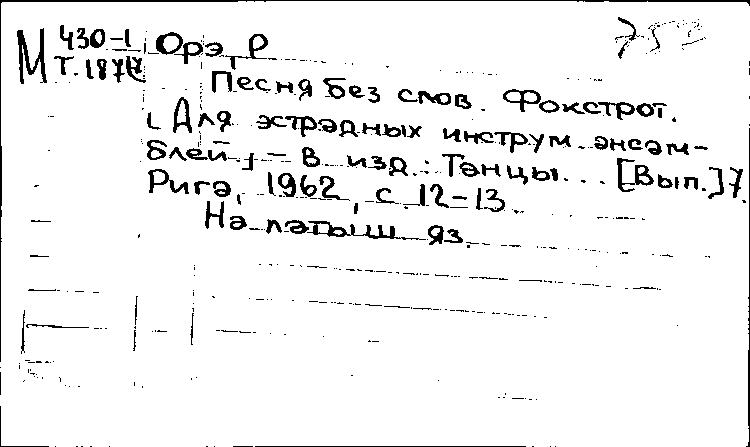 М 430-1 Орэ, Р
Т.1877
Песня без слов. Фокстрот.
[Для эстрадных инструм. ансам-
блей] – В изд.: Танцы... [Вып.] 7.
Рига, 1962, с. 12-13.
На латыш. яз.